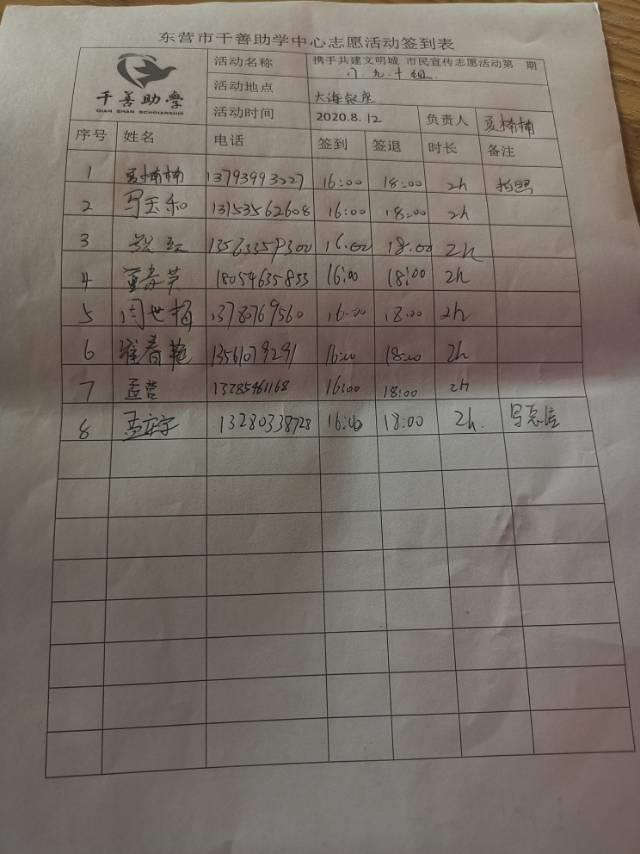 东营市千善助学中心志愿活动签到表
千善助學
QIAN SHAN SCHOLARSHIP
活动名称 携手共建文明城 市民宣传志愿活动第 期
八.九.十组.
活动地点 大海
活动时间 2020.8.12 负责人 夏楠楠
序号 姓名 电话 签到 签退 时长 备注
1 夏楠楠 13793993227 16:00 18:00 2h 拍照
2 马玉和 13153562608 16:00 18:00 2h
3 13563359300 16:00 18:00 2h
4 18054635833 16:00 18:00 2h
5 闫世梅 13780769560 16:00 18:00 2h
6 崔春艳 13561079291 16:00 18:00 2h
7 孟营 13285461168 16:00 18:00 2h
8 13280338728 16:00 18:00 2h. 写总结